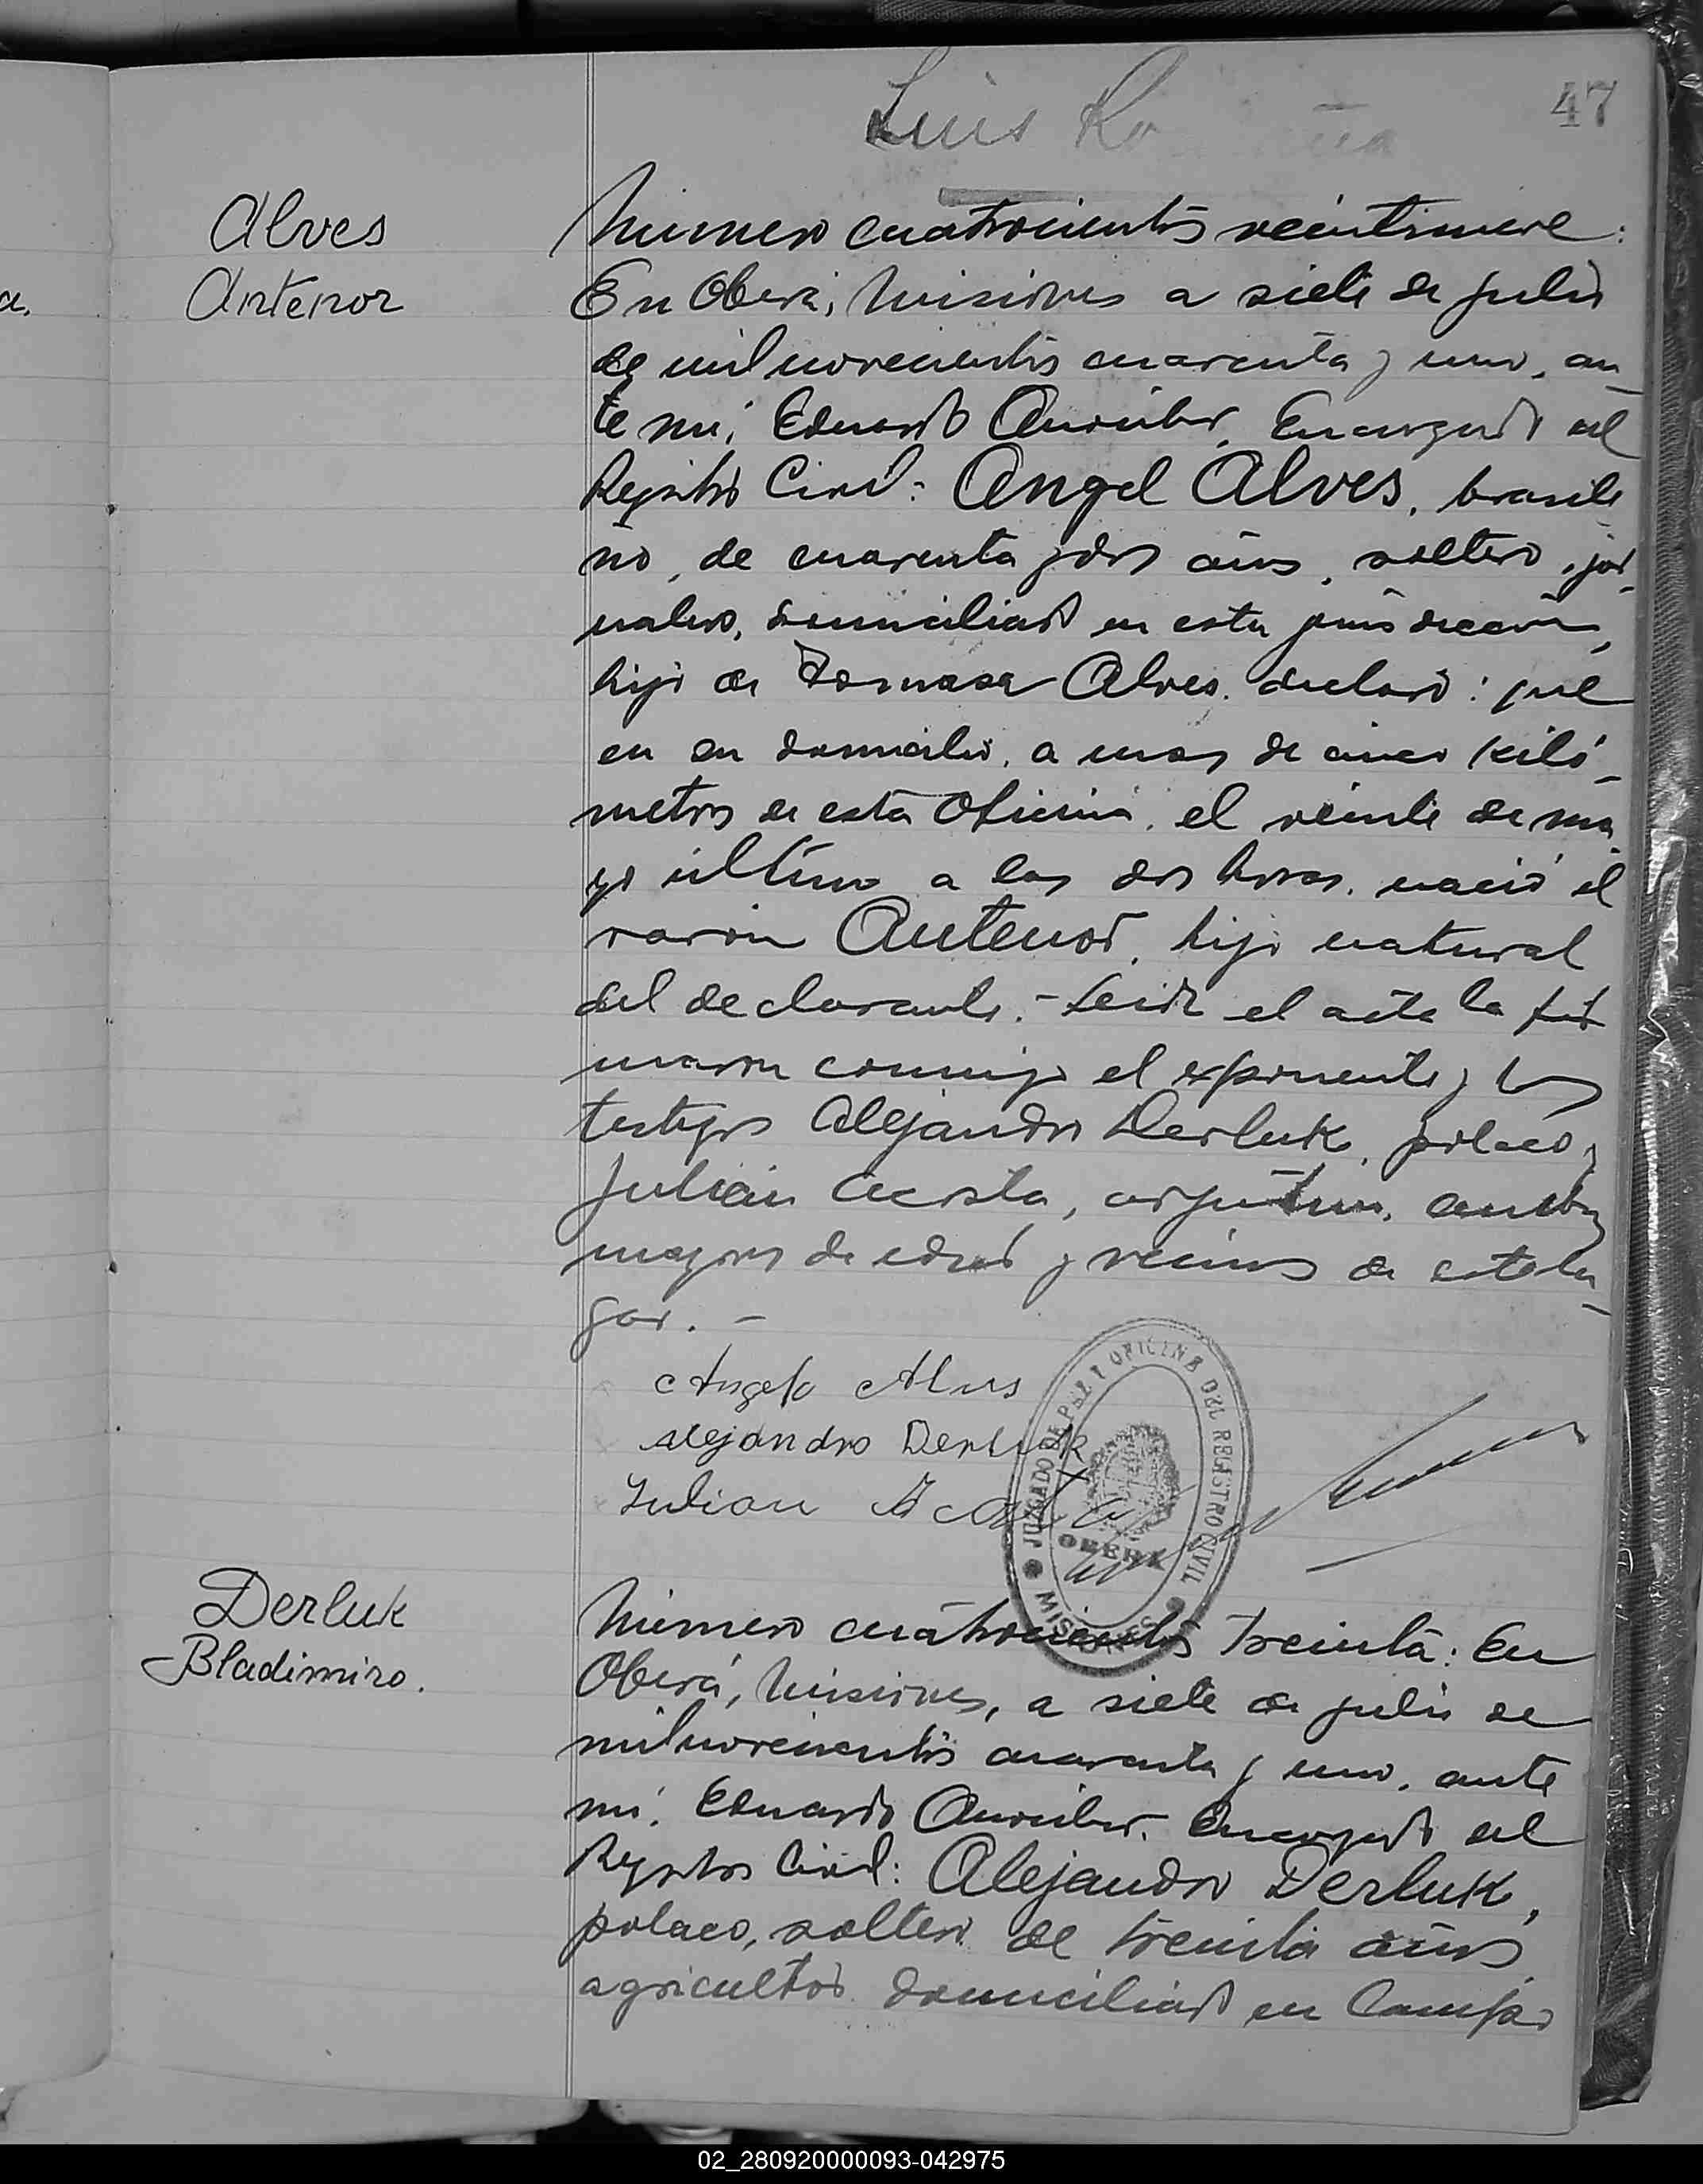 47
Luis
Alves
Antenor
Número cuatrocientos veintinueve:
En Oberá, Misiones a siete de julio
de mil novecientos cuarenta y uno, an_
te mí, Eduardo Encargado del
Registro Civil: Angel Alves, brasile_
ño, de cuarenta y dos años, soltero, jor_
nalero, domiciliado en esta jurisdicción,
hijo de Tomasa Alves, declaró: que
en su domicilio, a mas de cinco kiló_
metros de esta Oficina, el veinte de ma_
yo último a las dos horas, nació el
varón Antenor, hijo natural
del declarante.- Leida el acta la fir
maron conmigo el exponente y los
testigos Alejandro Derluk, polaco y
Julián Acosta, argentino, ambos
mayores de edad y vecinos de este lu_
gar. -
Angelo Alves
alejandro Derluk
Julian Acosta
JUZGADO DE PAZ Y OFICINA DEL REGISTRO CIVIL
OBERÁ
MISIONES
Derluk
Bladimiro.
Número cuatrocientos treinta: En
Oberá, Misiones, a siete de julio de
mil novecientos cuarenta y uno, ante
mí, Eduardo Encargado del
Registro Civil: Alejandro Derluk,
polaco, soltero de treinta años,
agricultor domiciliado en Campo
a.
02_280920000093-042975